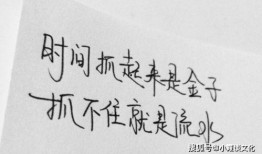 时间抓起来是金子
抓不住就是流水
搜狐号@小雅谈文化